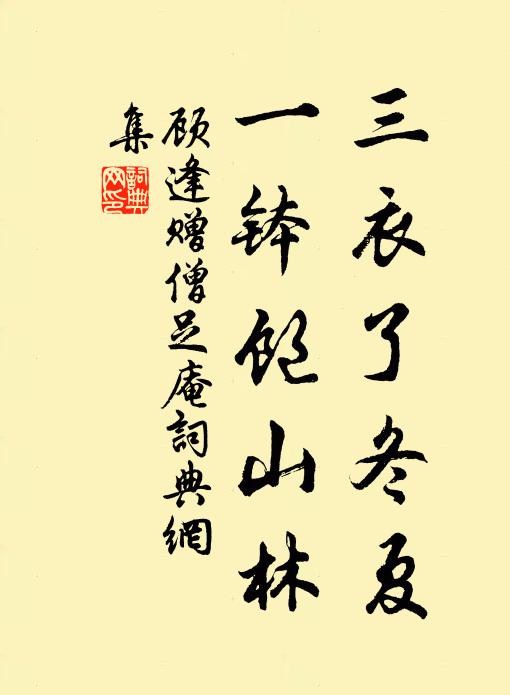 三衣了冬夏
一钵饱山林
顾逢赠僧足庵詞典網
集
詞典网印